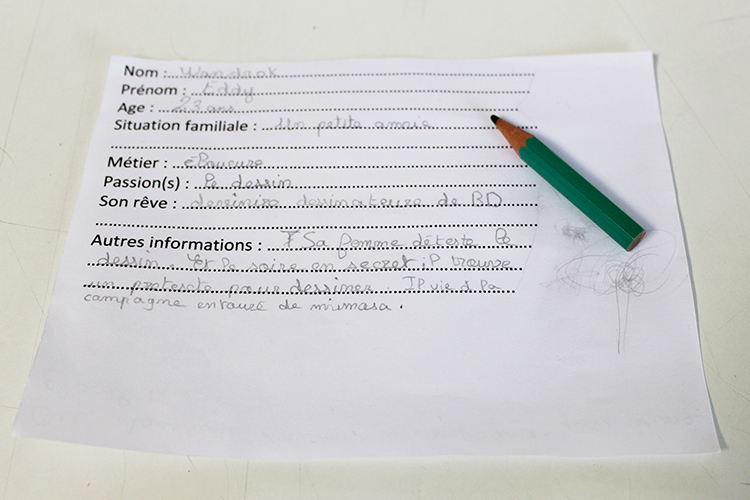 Nom : Wandrak
Prénom : Eddy
Age : 23 ans
Situation familiale : Un petite amie
Métier : éboueure
Passion(s) : le dessin
Son rêve : devenire dessinateure de BD
Autres informations : Sa femme déteste le
dessin. Et le soire en secret il trouve
un pretexte pour dessiner. Il vie à la
campagne entouré de mimosa.